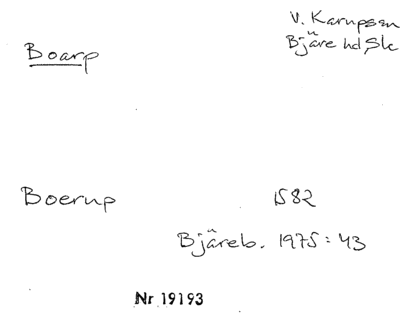 V. Karupssn
Boarp
Bjäre hd, Sk
Boerup 1582
Bjäreb. 1975: 43
Nr 19193